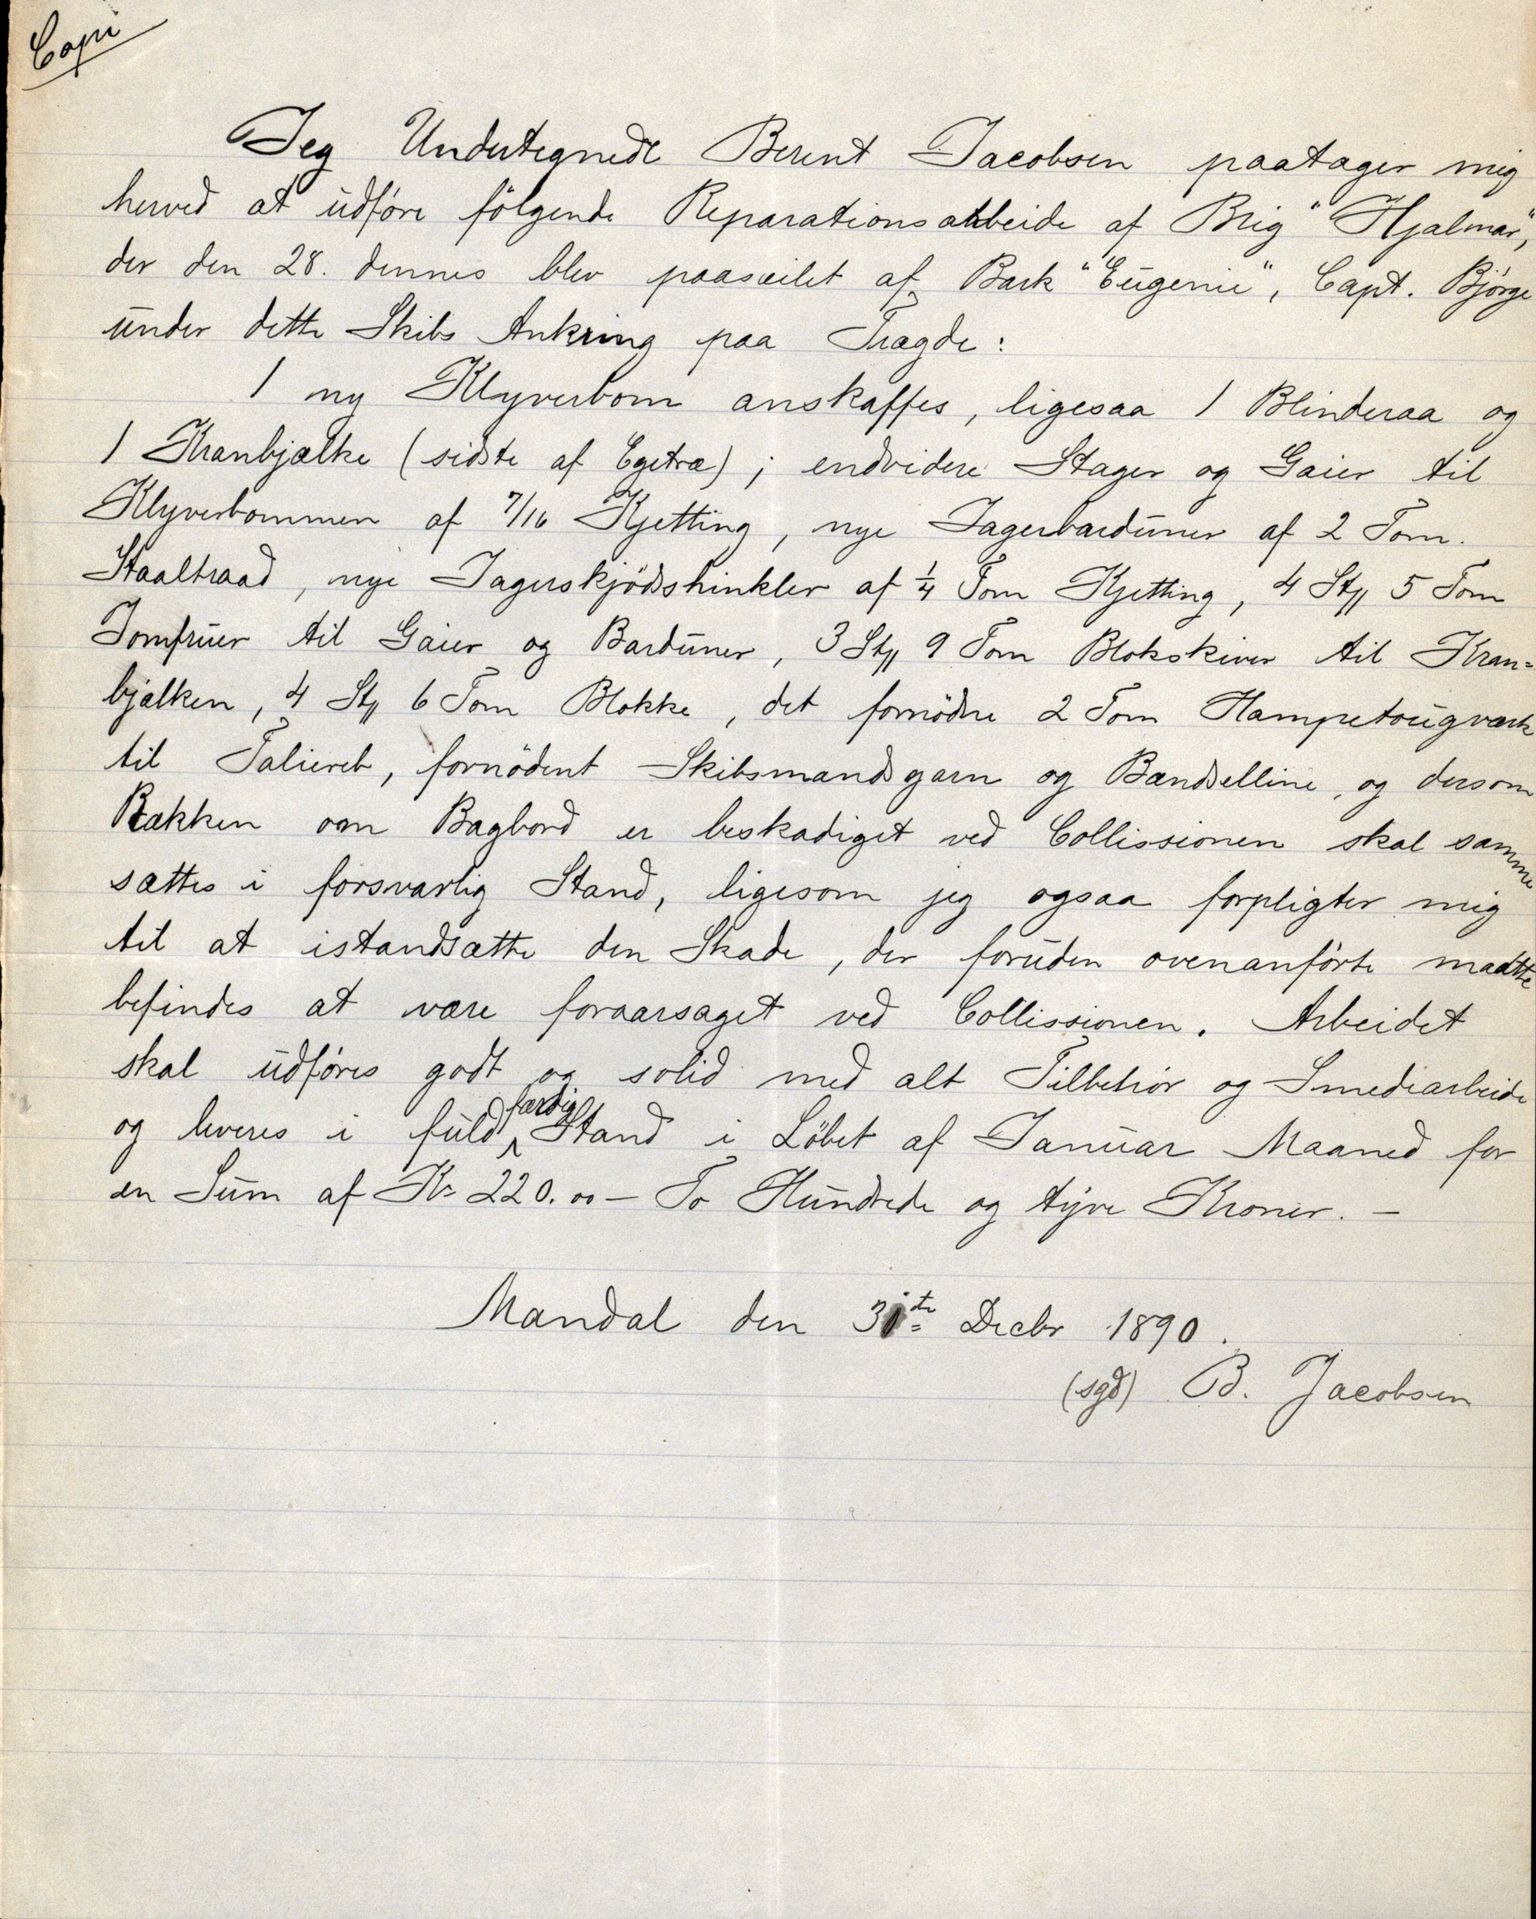 Copi
Jeg Undertegnede Berent Jacobsen paatager mig
herved at udføre følgende Reparationsarbeide af Brig "Hjalmar",
der den 28. dennes blev paaseilet af Bark "Eugenie", Capt. Bjørge
under dette Skibs Ankring paa Tragde:
1 ny Klyverbom anskaffes, ligesaa 1 Blinderaa og
1 Kranbjælke (sidste af Egetræ); endvidere Stager og Gaier til
Klyverbommen af 7/16 Kjetting, nye Jagerbarduner af 2 Tom.
Staaltraad, nye Jagerskjødshinkler af 1/4 Tom Kjetting, 4 Stk 5 Tom
Jomfruer til Gaier og Barduner, 3 Stk 9 Tom Blokskiver til Kran=
bjælken, 4 Stk 6 Tom Blokke, det fornødne 2 Tom Hampetougværk
til Taliereb, fornødent Skibsmandsgarn og Bændselline, og dersom
Rækken om Bagbord er beskadiget ved Collissionen skal samme
sættes i forsvarlig Stand, ligesom jeg ogsaa forpligter mig
til at istandsætte den Skade, der foruden ovenanførte maatte
befindes at være foraarsaget ved Collissionen. Arbeidet
skal udføres godt og solid med alt Tilbehør og Smediearbeide
og leveres i fuld færdig Stand i Løbet af Januar Maaned for
en Sum af Kr 220.00 – To Hundrede og tyve Kroner. –
Mandal den 31te Decbr 1890.
(sgd) B. Jacobsen